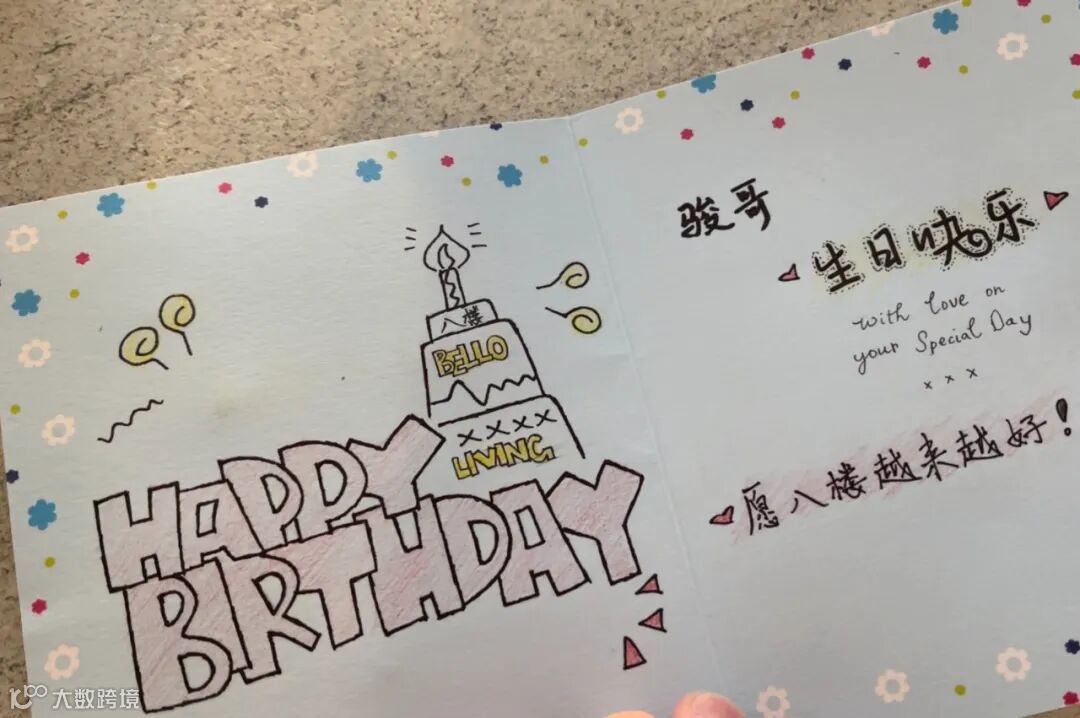 八楼
BELLO
XXXX
LIVING
HAPPY
BIRTHDAY
骏哥
生日快乐
with love on
your Special Day
x x x
愿八楼越来越好!
大数跨境